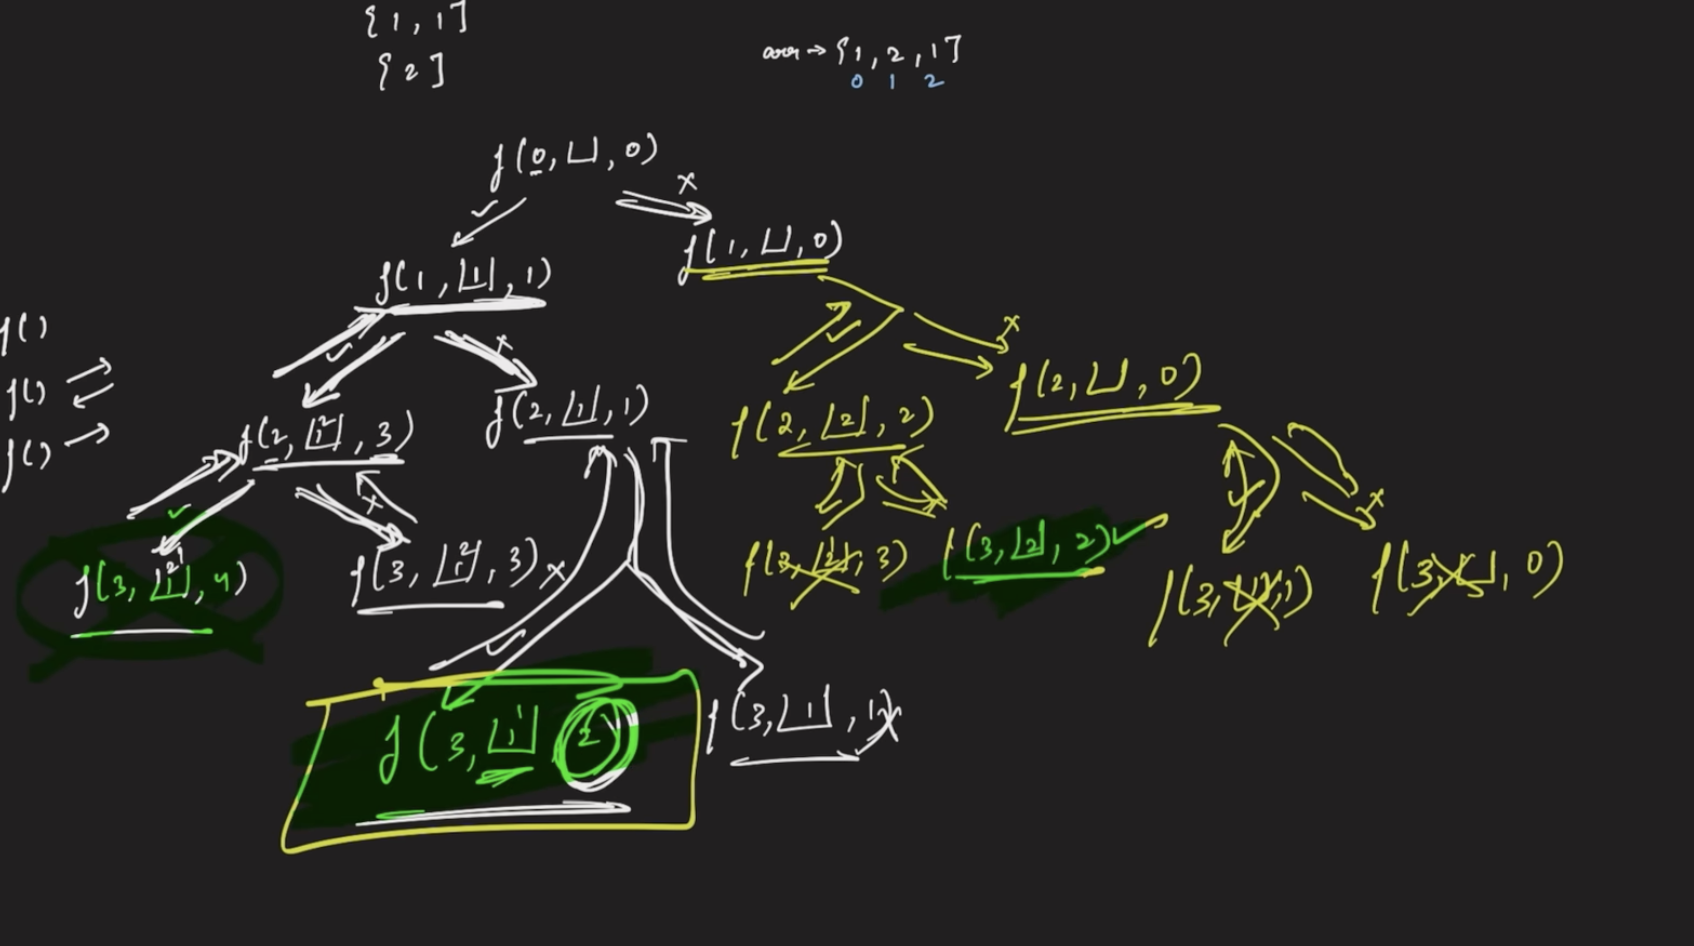 {1, 1]
{2]
arr → {1, 2, 1]
0 1 2
f(0, ⌊⌋, 0)
✓ x
f(1, ⌊1⌋, 1) f(1, ⌊⌋, 0)
f()
f()
f()
✓ x ✓ x
f(2, ⌊1 2⌋, 3) f(2, ⌊1⌋, 1) f(2, ⌊2⌋, 2) f(2, ⌊⌋, 0)
✓ x ✓ x
f(3, ⌊1 2 1⌋, 4) f(3, ⌊1 2⌋, 3) x f(3, 3) f(3, ⌊2⌋, 2) ✓ f(3, 1) f(3, ⌊⌋, 0)
✓
f(3, ⌊1 1⌋, 2) f(3, ⌊1⌋, 1) x